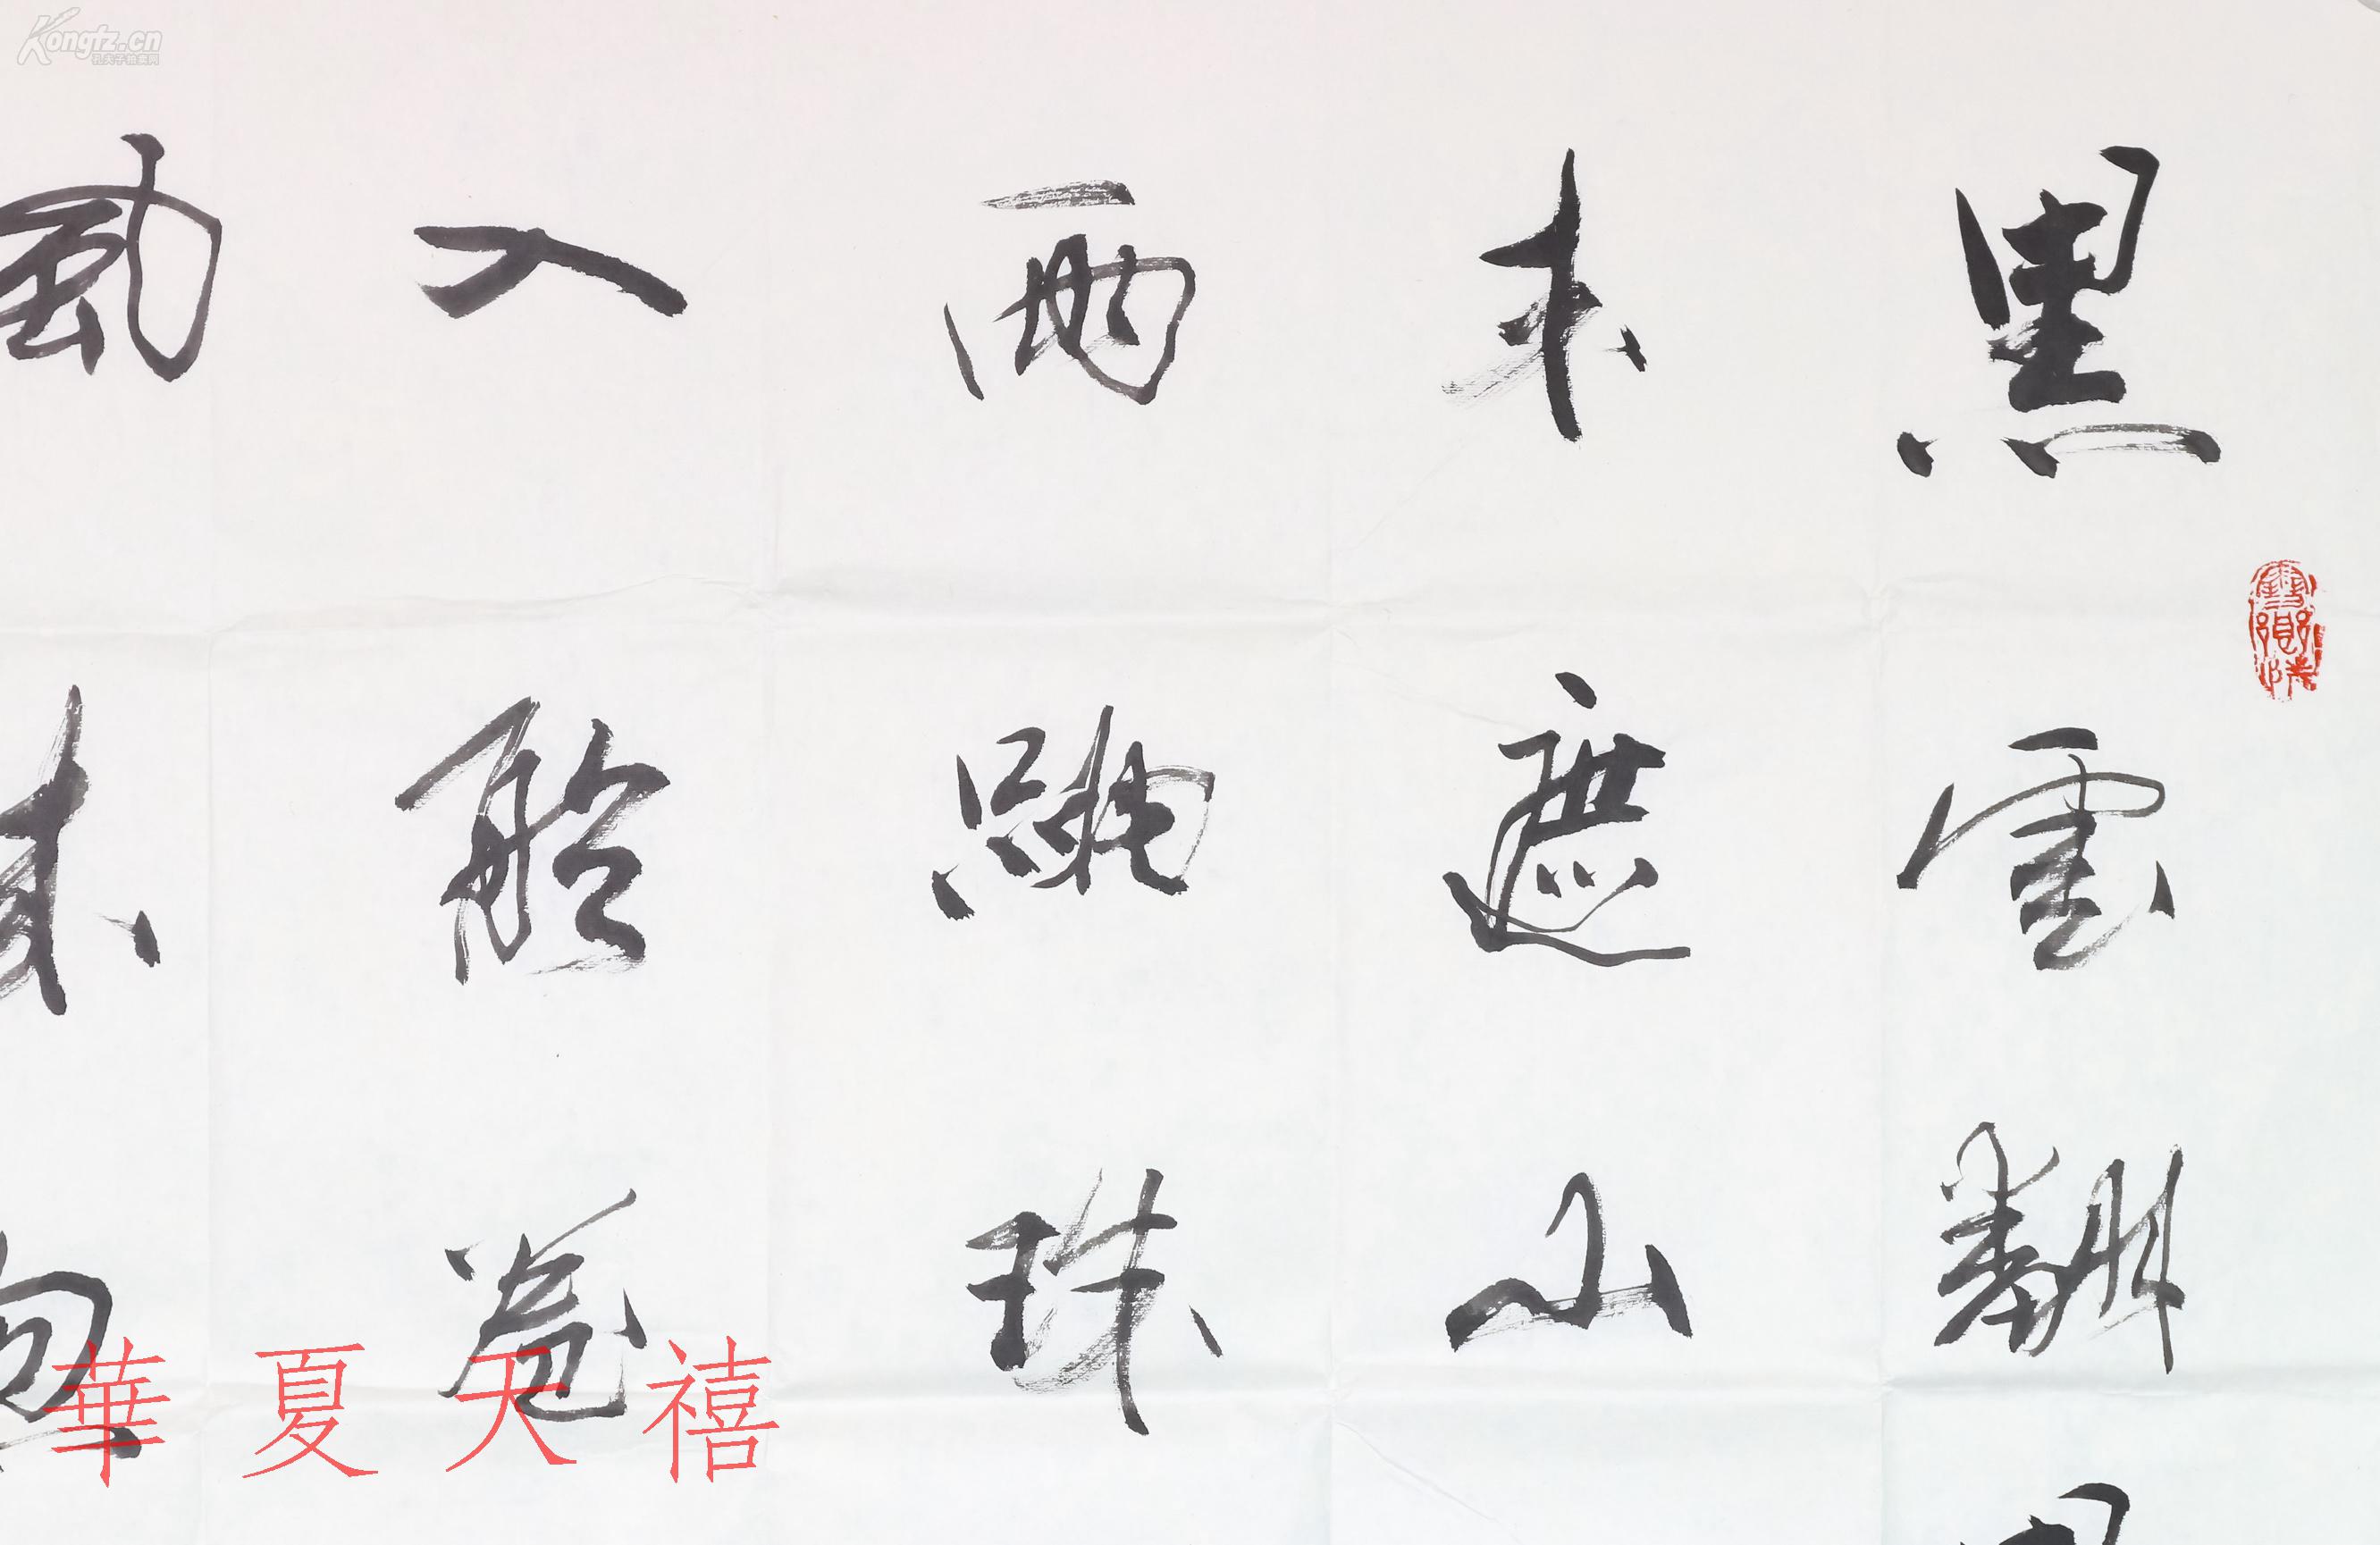 黑雲翻
未遮山
雨跳珠
入船卷
風來忽
華夏天禧
Kongfz.cn
孔夫子拍卖网